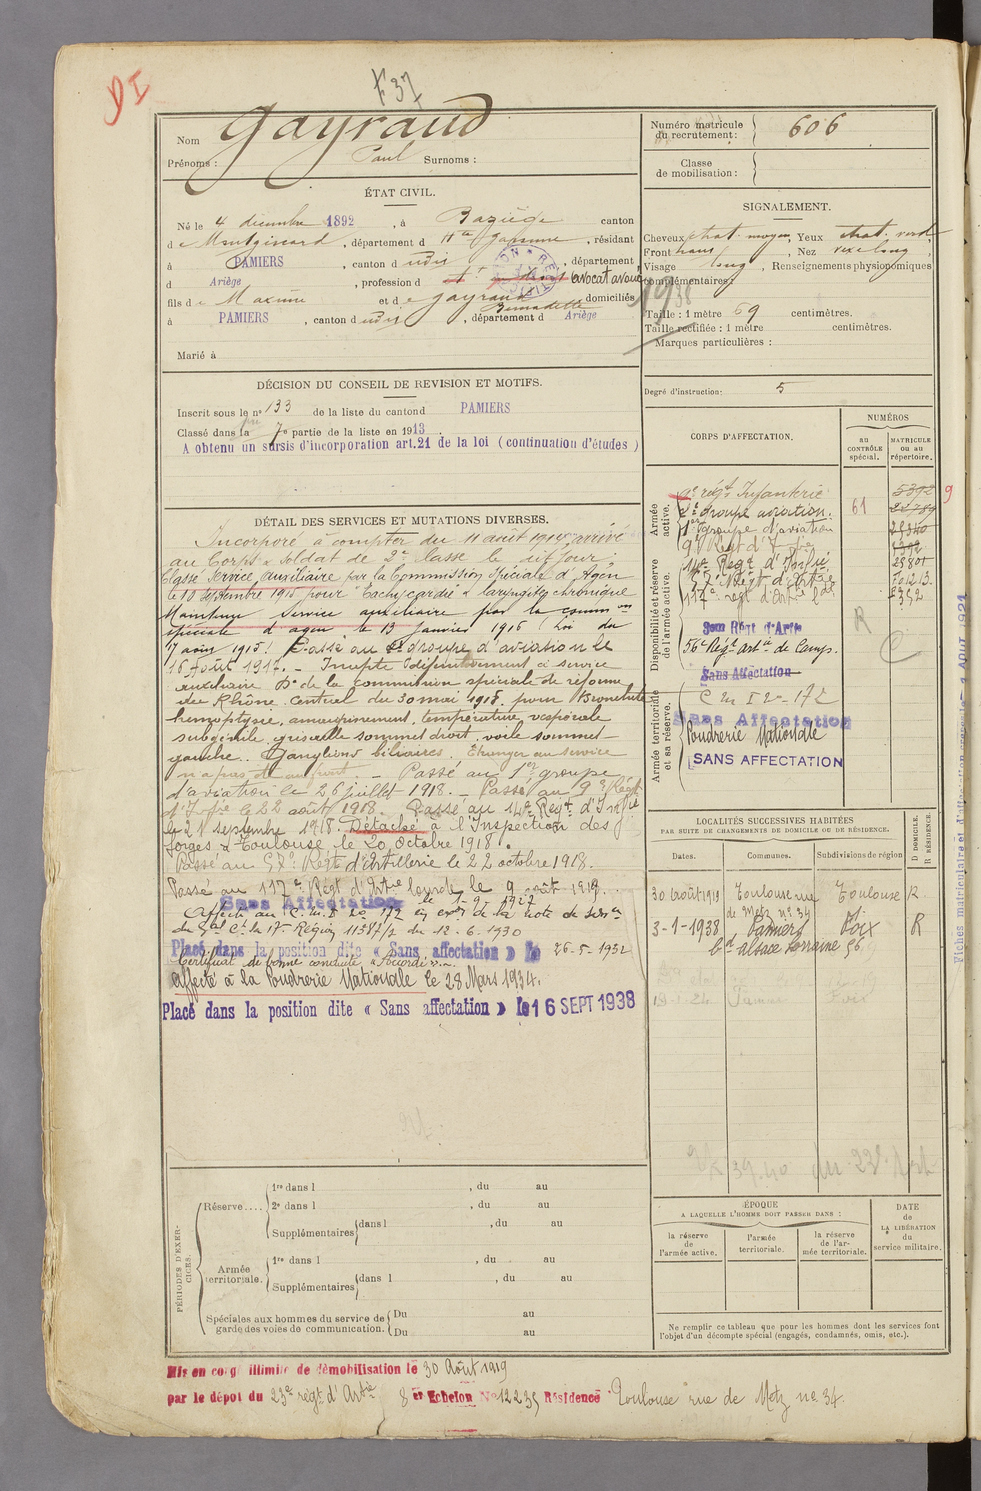 DI
F 37
Nom Gayraud
Prénoms : Paul Surnoms :
ÉTAT CIVIL.
Né le 4 décembre 1892, à Baziège canton
de Montgiscard, département d Hte Garonne, résidant
à PAMIERS, canton d udis, département
d Ariège, profession d avocat avoué
fils de Maxime et de Gayraud Bernadette domiciliés
à PAMIERS, canton d udis, département d Ariège
Marié à
DÉCISION DU CONSEIL DE REVISION ET MOTIFS.
Inscrit sous le n° 133 de la liste du canton d PAMIERS
Classé dans la 7e partie de la liste en 1913.
A obtenu un sursis d'incorporation art.21 de la loi (continuation d'études)
DÉTAIL DES SERVICES ET MUTATIONS DIVERSES.
Incorporé à compter du 11 août 1914 arrivé
au Corps & soldat de 2e classe le dit jour.
Classé Service Auxiliaire par la Commission Spéciale d'Agen
le 10 septembre 1915 pour Tachycardie & laryngite chronique
Maintenu service auxiliaire par la comm on
spéciale d'agen le 13 janvier 1916 (Loi du
17 août 1915). Passé au 2e groupe d'aviation le
16 Août 1917. – Inapte définitivement à service
auxiliaire Don de la commission spéciale de réforme
du Rhône central du 30 mai 1918. pour Bronchite
hémoptysie, amaigrissement, température vespérale
subfébrile, grisaille sommet droit, voile sommet
gauche.. Ganglions biliaires. Etranger au service
n'a pas été au front. – Passé au 1er groupe
d'aviation le 26 juillet 1918. – Passé au 9e Régt
d'Ifie le 22 août 1918. Passé au 14e Régt d'Infie
le 21 septembre 1918. Détaché à l'Inspection des
forges à Toulouse le 20 octobre 1918.
Passé au 57e Régt d'Artillerie le 22 octobre 1918.
Passé au 117e Régt d'Artie lourde le 9 août 1919.
Sans Affectation le 1-9-1927
Affecté au C.M.I 2e 172 en exon de la note de serv.
du Gal Ct la 17e Région 11387/1 du 12.6.1930
Placé dans la position dite « Sans affectation » le 26-5-1932
Certificat de bonne conduite « Accordé »
affecté à la Poudrerie Nationale le 28 Mars 1934.
Placé dans la position dite « Sans affectation » le 16 SEPT 1938
PÉRIODES D'EXERCICES.
Réserve....
1re dans l , du au
2e dans l , du au
Supplémentaires dans l , du au
Armée territoriale.
1re dans l , du au
Supplémentaires dans l , du au
Spéciales aux hommes du service de garde des voies de communication.
Du au
Du au
Numéro matricule du recrutement : 606
Classe de mobilisation :
SIGNALEMENT.
Cheveux chat. moyen, Yeux chat. verd
Front haut, Nez vexe long
Visage long, Renseignements physionomiques
complémentaires :
1938
Taille : 1 mètre 69 centimètres.
Taille rectifiée : 1 mètre centimètres.
Marques particulières :
Degré d'instruction : 5
CORPS D'AFFECTATION.
NUMÉROS
au CONTRÔLE spécial.
MATRICULE ou au répertoire.
Armée active.
9e régt Infanterie 61 5392 9
2e groupe aviation.
1er groupe d'aviation
Disponibilité et réserve de l'armée active.
9e Régt d'Ifie
14e Régt d'Infie 25801
57e Régt d'Artie
117e régt d'Artie Lde 2352
56e Régt Artie de Camp.
R
C
Sans Affectation
Armée territoriale et sa réserve.
C M I 2e 172
Sans Affectation
Poudrerie Nationale
SANS AFFECTATION
LOCALITÉS SUCCESSIVES HABITÉES
PAR SUITE DE CHANGEMENTS DE DOMICILE OU DE RÉSIDENCE.
Dates. Communes. Subdivisions de région
D DOMICILE. R RÉSIDENCE.
30 août 1919 Toulouse rue de Metz n° 34 Toulouse R
3-1-1938 Pamiers Foix R
Bd alsace Lorraine 56
ÉPOQUE
A LAQUELLE L'HOMME DOIT PASSER DANS :
la réserve de l'armée active.
l'armée territoriale.
la réserve de l'armée territoriale.
DATE de LA LIBÉRATION du service militaire.
Ne remplir ce tableau que pour les hommes dont les services font
l'objet d'un décompte spécial (engagés, condamnés, omis, etc.).
Mis en congé illimité de démobilisation le 30 Août 1919
par le dépot du 23e régt d'Artie 8er Echelon No 12235 Résidence Toulouse rue de Metz no 34.